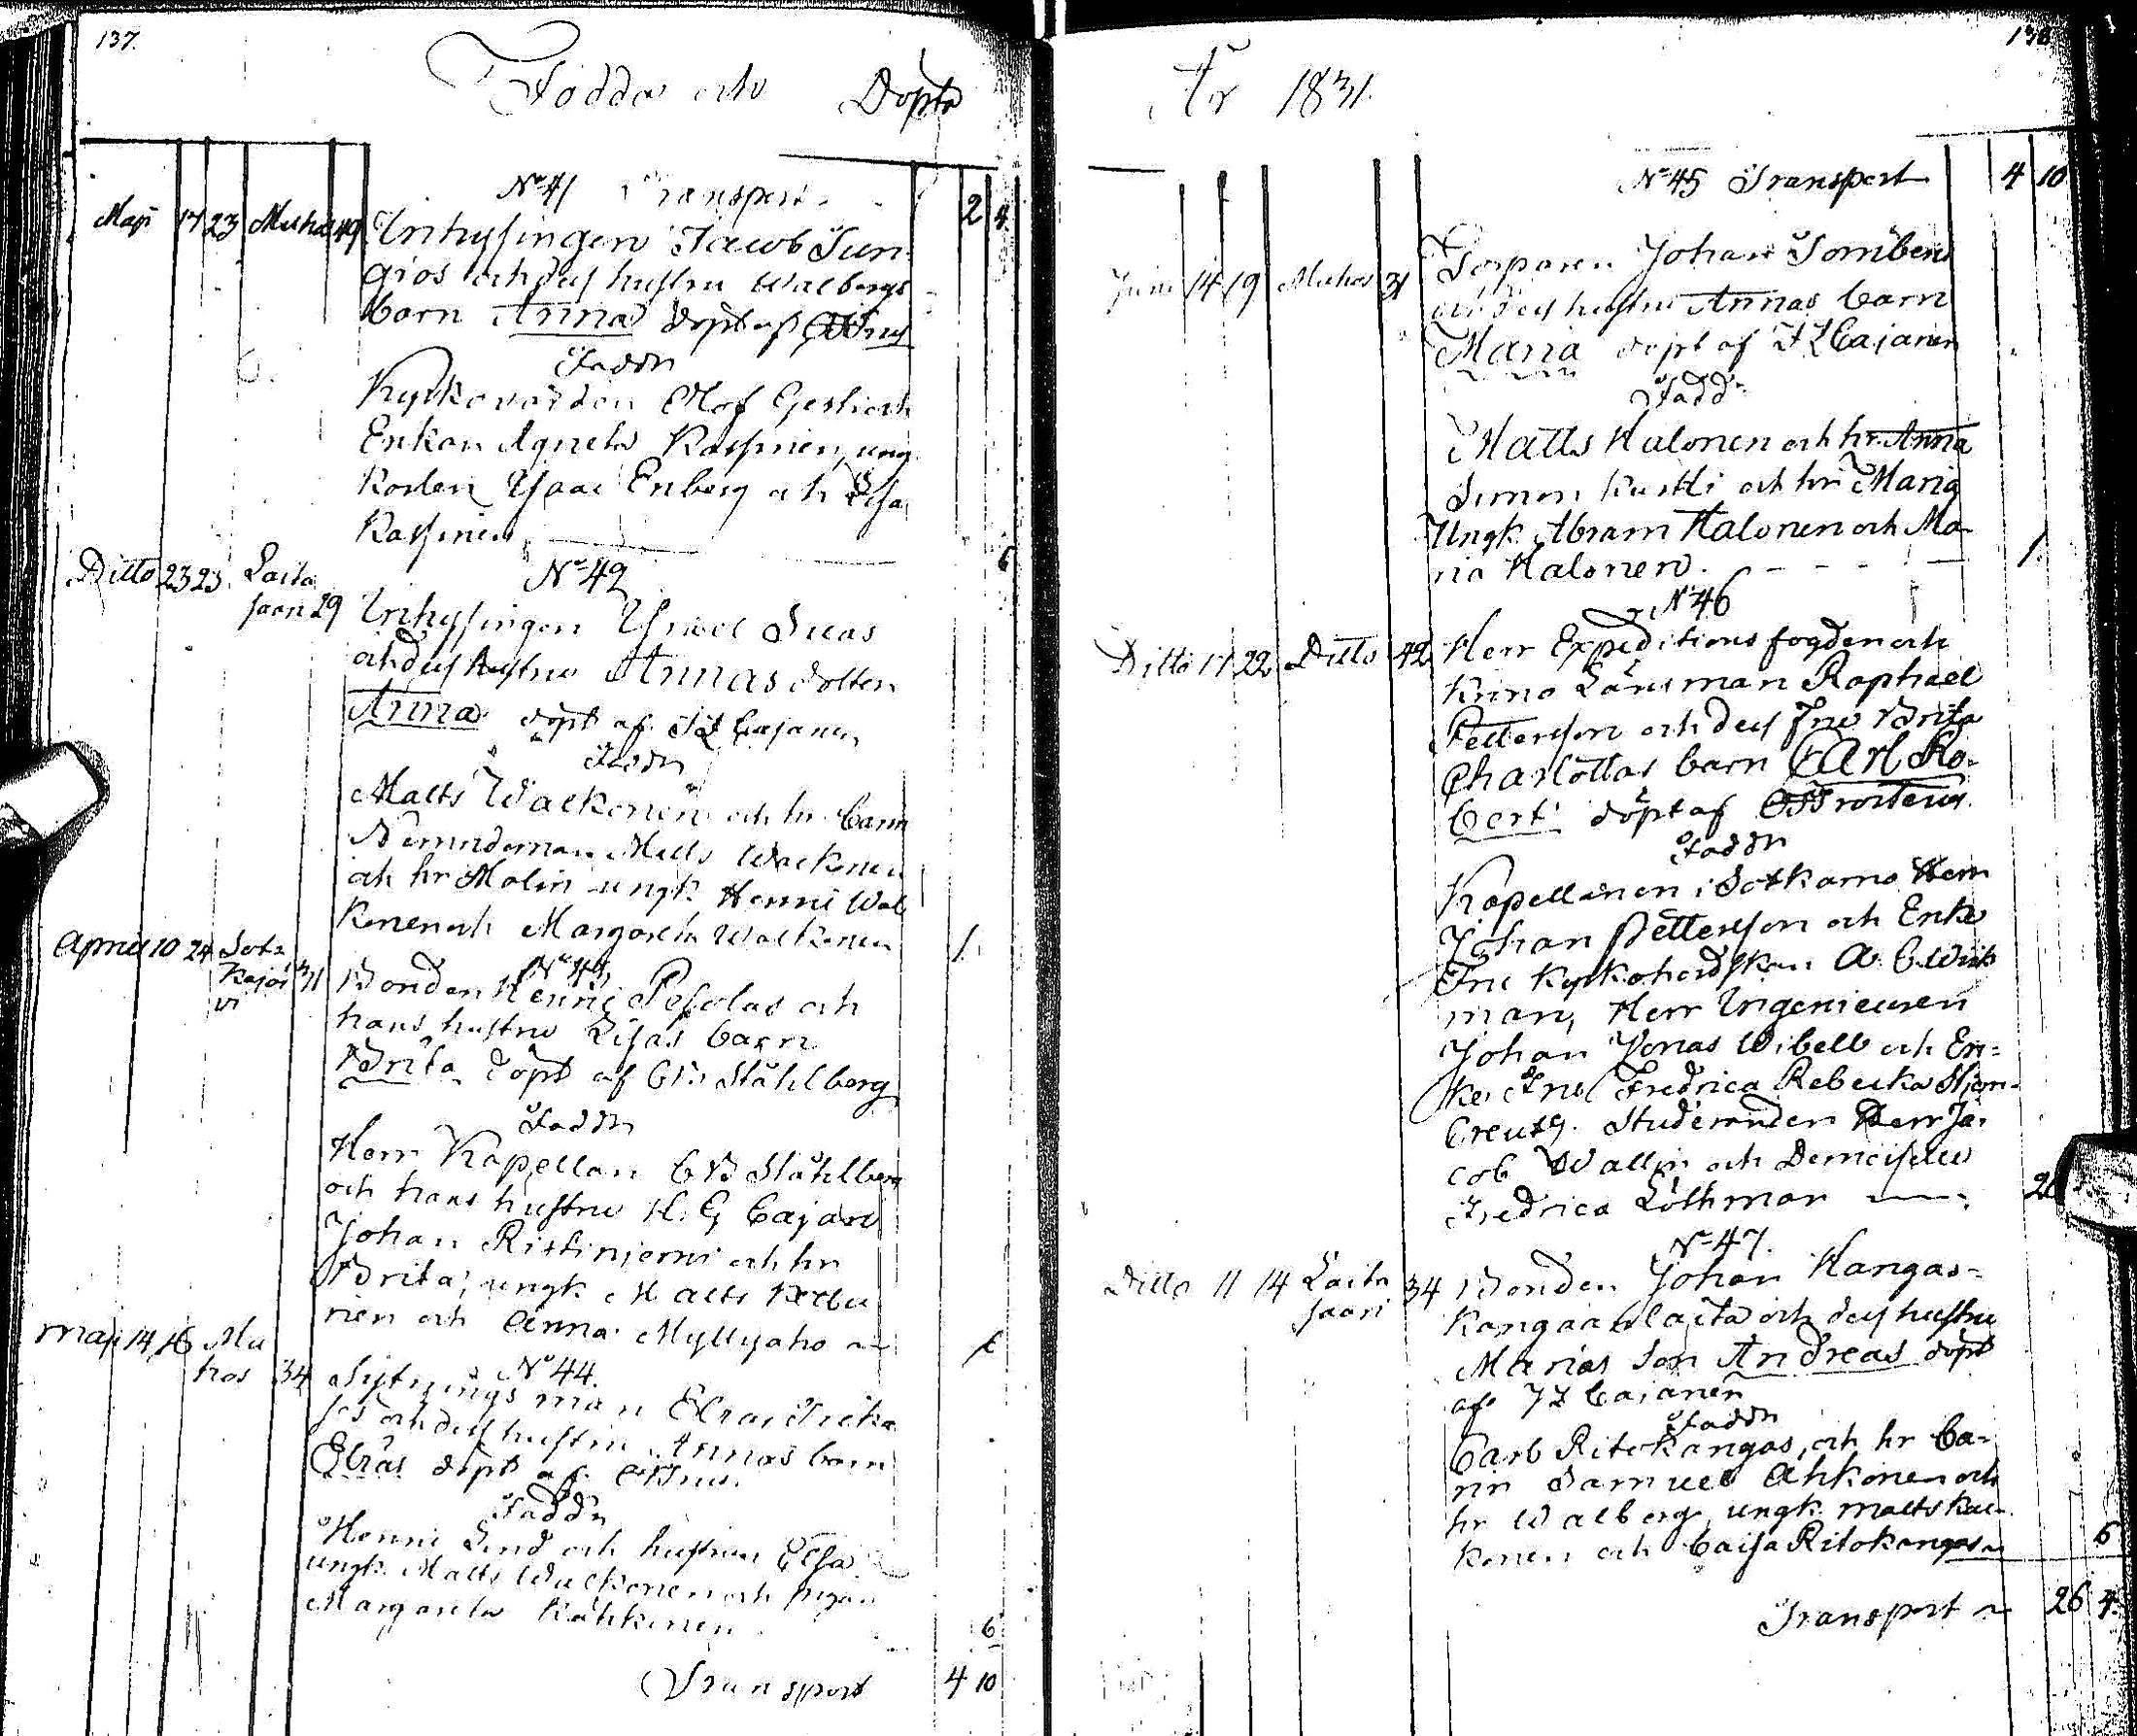 137.
Födda och Döpta
No 41 Transport 2 4
Maji 17 23 Muhos 49 Inhysingen Jacob Sun-
gios och dess hustru Walbergs
barn Anna döpt af
Faddr
Kyrkovärden Olof Gerli och
Enkan Agneta Kassinen, ung
Karlen Isaac Enberg och Lisa
Kassinen 6
No 42
Ditto 23 23 Laita
saari 29 Inhysingen
och dess hustru Annas dotter
Anna döpt af J L Cajanen
Faddr
Matts Walkonen och hr Carin
Nämndeman Matts Walkonen
och hr Malin ungk. Henric Wal
konen och Margareta Walkonen 1
April 10 24 Soti
kajär
vi 31 Bonden Henric Pesolas och
hans hustru Lisas barn
Brita döpt af C B Ståhlberg
Faddr
Herr Kapellan C B Ståhlberg
och hans hustru H. G Cajan
Johan Ristinjemi och hr
Brita, ungk. Matts
nen och Anna Myllyaho 1
No 44.
Maji 14 16 Mu
hos 34 Sytningsman Elias
och dess hustru Annas barn
Elias döpt af
Faddr
Henric Lind och hustrun Elsa
ungk. Matts Walkonen och pigan
Margareta Kähkönen 6
Transport 4 10
138
År 1831.
No 45 Transport 4 10
Juni 14 19 Muhos 31 Torparen Johan Tornbergs
och dess hustru Annas barn
Maria döpt af J L Cajanen
Fadd
Matts Halonen och hr. Anna
Simon och hr Maria
Ungk. Abram Halonen och Ma-
ria Halonen. 1
No 46
Ditto 17 22 Ditto 42 Herr Expeditionsfogden och
Krono Länsman Raphael
Pettersson och dess Fru Brita
Charlottas barn Carl Ro-
bert döpt af
Faddr
Kapellanen i Sotkamo Herr
Johan Pettersson och Enke
Fru Kyrkoherdskan A. C. Wik
man, Herr Ingenieuren
Johan Jonas Wibell och En-
ke Fru Fredrica Rebecka Stjern-
Creutz. Studeranden Herr Ja-
cob Wallin och Demoiselle
Fredrica Löthman
No 47.
Ditto 11 14 Laita
saari 34 Bonden Johan Kangas-
Kangaanlaita och dess hustru
Marias Son Andreas döpt
af J L Cajanen
Faddr
Carl Ritokangas, och hr Ca-
rin Samuel Ahkonen och
hr Walberg, ungk. Matts
konen och Caisa Ritokangas 6
Transport 26 4